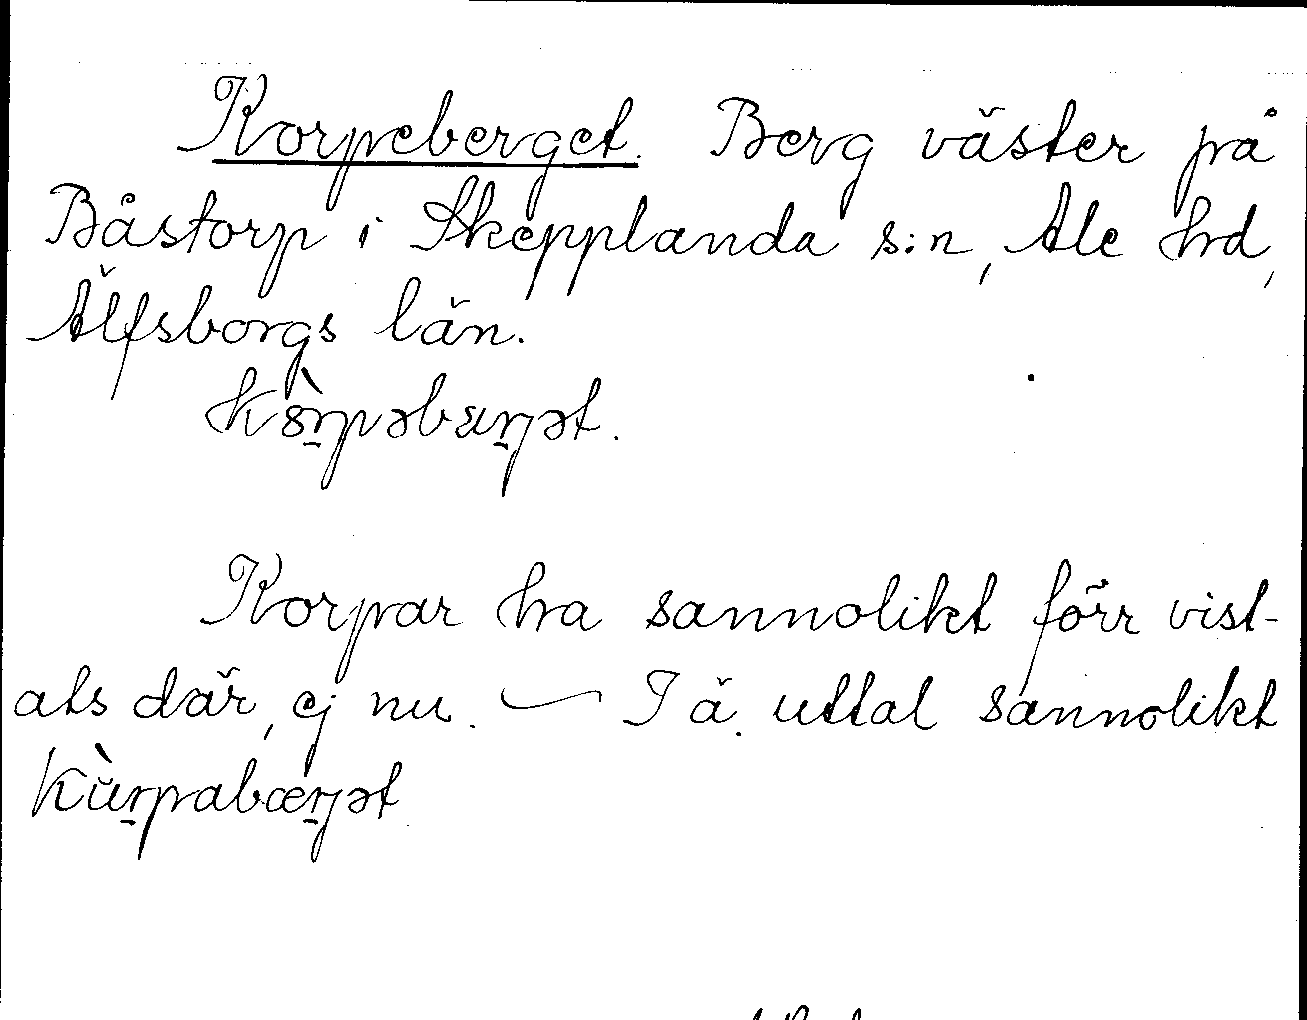 Korpeberget. Berg väster på
Båstorp i Skepplanda s:n, Ale hd,
Älfsborgs län.
Korpar ha sannolikt förr vist-
ats där, ej nu. — I ä. uttal sannolikt